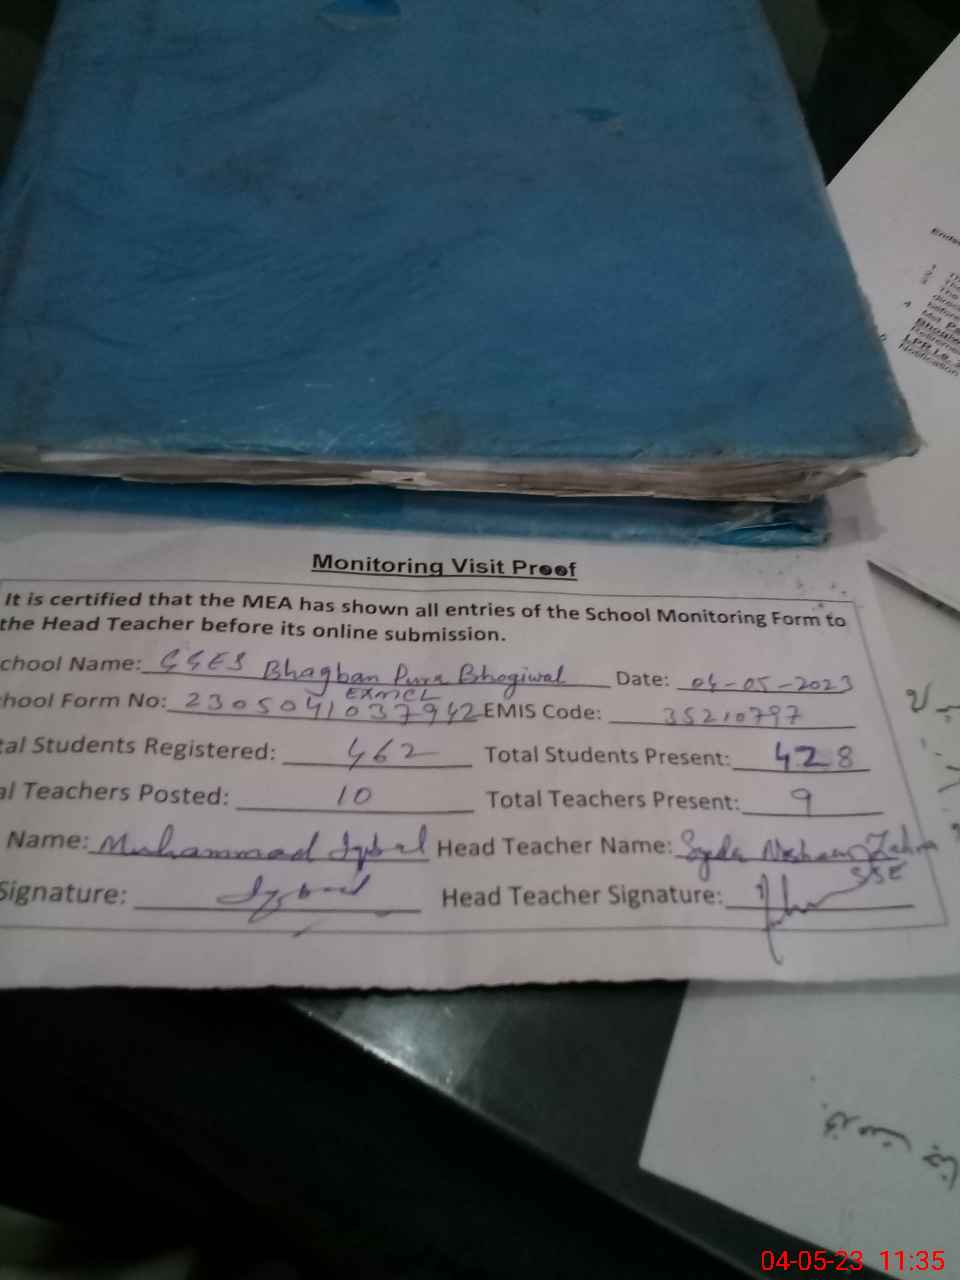 Monitoring Visit Proof
It is certified that the MEA has shown all entries of the School Monitoring Form to
the Head Teacher before its online submission.
chool Name: GGES Bhagban Pura Bhogiwal Date: 04-05-2023
EXMCL
hool Form No: 2305041037942 EMIS Code: 35210797
tal Students Registered: 462 Total Students Present: 428
al Teachers Posted: 10 Total Teachers Present: 9
Name: Muhammad Iqbal Head Teacher Name: Syeda Zahra
SSE
Signature: Iqbal Head Teacher Signature:
before
Retireme
Notification
04-05-23 11:35